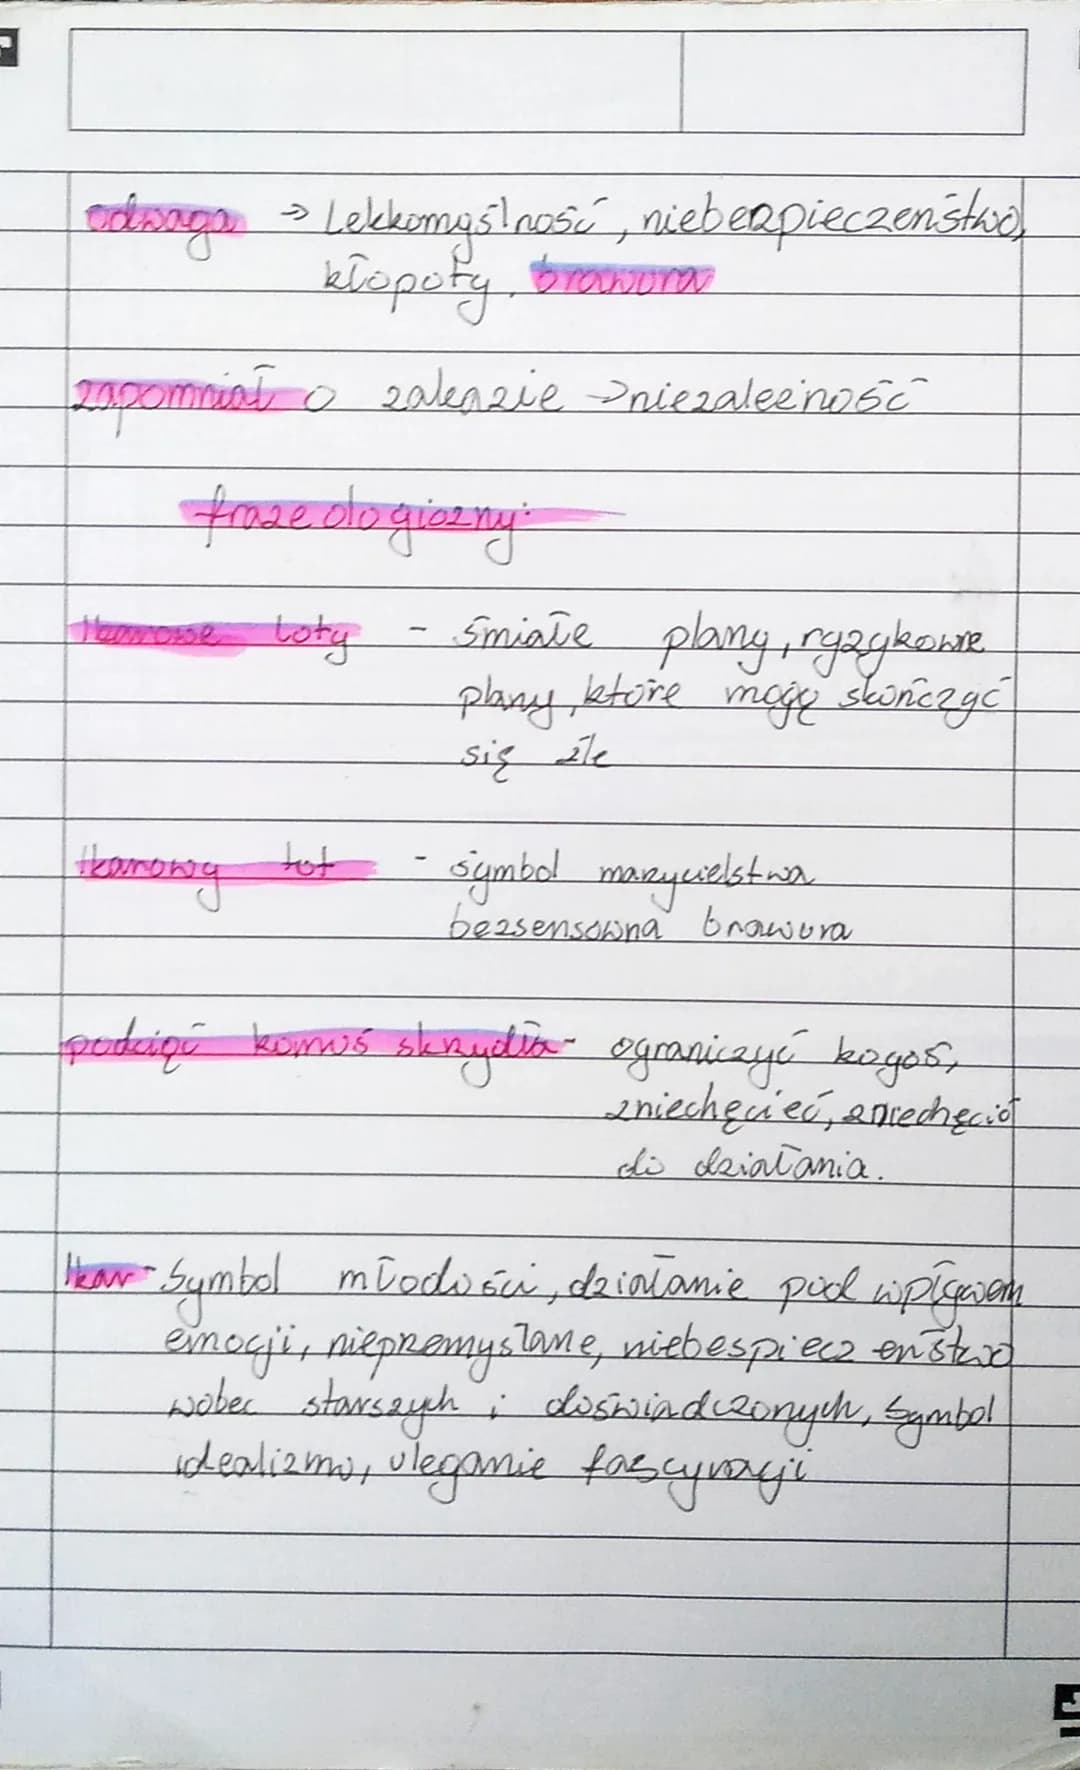 odwaga → Lekkomyślność, niebezpieczeństwo,
kłopoty, brawura
zapomniał o zakazie → niezależność
frazeologiczny:
Ikarowe loty - śmiałe plany, ryzykowne
plany, które mogą skończyć
się źle
Ikarowy lot - symbol marzycielstwa
bezsensowna brawura
podciąć komuś skrzydła - ograniczyć kogoś,
zniechęcieć, zniechęcić
do działania.
Ikar - Symbol młodości, działanie pod wpływem
emocji, niepremyślane, niebespieczeństwo
wobec starszych i doświadczonych, Symbol
idealizmu, uleganie fascynacji